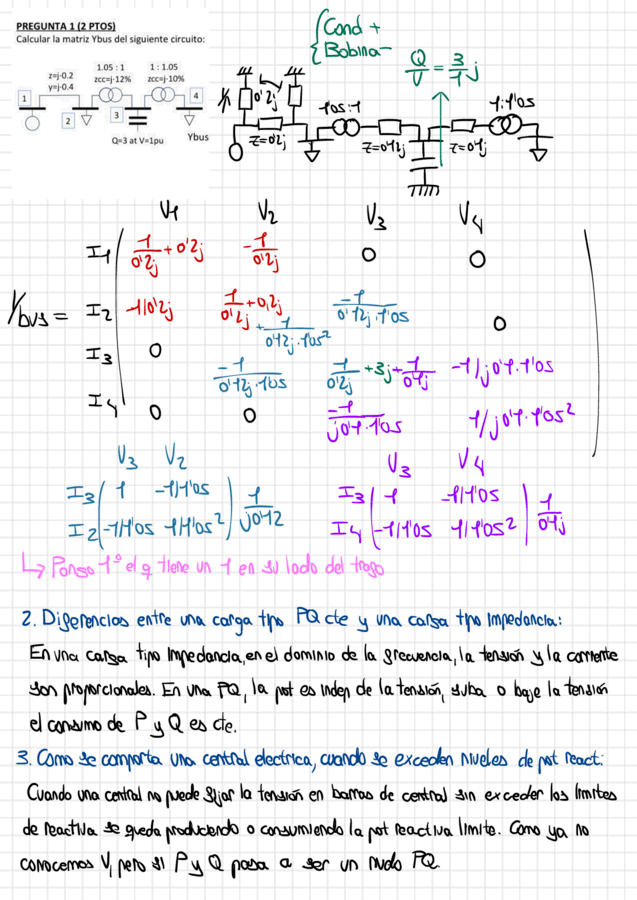 PREGUNTA 1 (2 PTOS)
Calcular la matriz Ybus del siguiente circuito:
z=j·0.2
y=j·0.4
1.05 : 1
zcc=j·12%
1 : 1.05
zcc=j·10%
1
2
3
4
Q=3 at V=1pu
Ybus
Cond +
Bobina -
Q/V = 3/1 j
0'2j
Z=0'2j
1'05:1
Z=0'12j
Z=0'1j
1:1'05
V1 V2 V3 V4
Ybus =
I1 1/0'2j + 0'2j -1/0'2j 0 0
I2 -1/0'2j 1/0'2j + 0,2j + 1/0'12j·1'05² -1/0'12j·1'05 0
I3 0 -1/0'12j·1'05 1/0'12j + 3j + 1/0'1j -1/j0'1·1'05
I4 0 0 -1/j0'1·1'05 1/j0'1·1'05²
V3 V2
I3 1 -1/1'05
I2 -1/1'05 1/1'05² 1/j0'12
V3 V4
I3 1 -1/1'05
I4 -1/1'05 1/1'05² 1/0'1j
↳ Pongo 1º el q tiene un 1 en su lado del trafo
2. Diferencias entre una carga tipo PQ cte y una carga tipo impedancia:
En una carga tipo impedancia, en el dominio de la frecuencia, la tensión y la corriente
son proporcionales. En una PQ, la pot es indep de la tensión, suba o baje la tensión
el consumo de P y Q es cte.
3. Como se comporta una central electrica, cuando se exceden niveles de pot react:
Cuando una central no puede fijar la tensión en barras de central sin exceder los limites
de reactiva se queda produciendo o consumiendo la pot reactiva limite. Como ya no
conocemos V, pero si P y Q pasa a ser un nudo PQ.